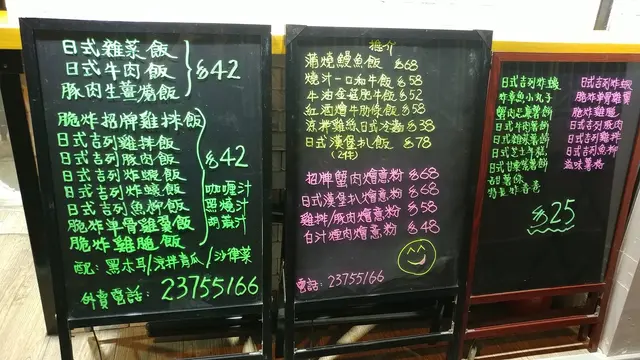 日式雜菜飯
日式牛肉飯
豚肉生薑燒飯
$42
脆炸招牌雞扒飯
日式吉列雞扒飯
日式吉列豚肉飯
日式吉列炸蝦飯
日式吉列炸蠔飯
日式吉列魚柳飯
脆炸單骨雞翼飯
脆炸雞腿飯
$42
咖喱汁
照燒汁
胡麻汁
配: 黑木耳/涼拌青瓜/沙律菜
外賣電話: 23755166
推介
蒲燒鰻魚飯 $68
燒汁一口和牛飯 $58
牛油金菇肥牛飯 $52
紅酒燴牛肋條飯 $58
涼拌雞絲日式冷麵 $38
日式漢堡扒飯 $78
(2件)
招牌蟹肉燴意粉 $68
日式漢堡扒燴意粉 $68
雞扒/豚肉燴意粉 $58
白汁煙肉燴意粉 $48
電話: 23755166
日式吉列炸蝦
炸章魚小丸子
蟹肉芝薯餅
日式牛肉薯餅
日式雜菜薯餅
日式甘栗薯餅
甜薯條
日式吉列炸蠔
脆炸單骨雞翼
脆炸雞腿
日式吉列豚肉
日式吉列雞扒
日式吉列魚柳
滋味薯格
$25